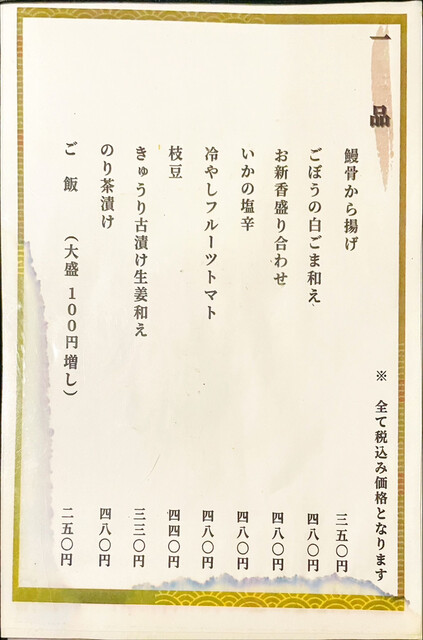 一品
※ 全て税込み価格となります
鰻骨から揚げ 三五〇円
ごぼうの白ごま和え 四八〇円
お新香盛り合わせ 四八〇円
いかの塩辛 四八〇円
冷やしフルーツトマト 四八〇円
枝豆 四四〇円
きゅうり古漬け生姜和え 三三〇円
のり茶漬け 四八〇円
ご飯 (大盛100円増し) 二五〇円